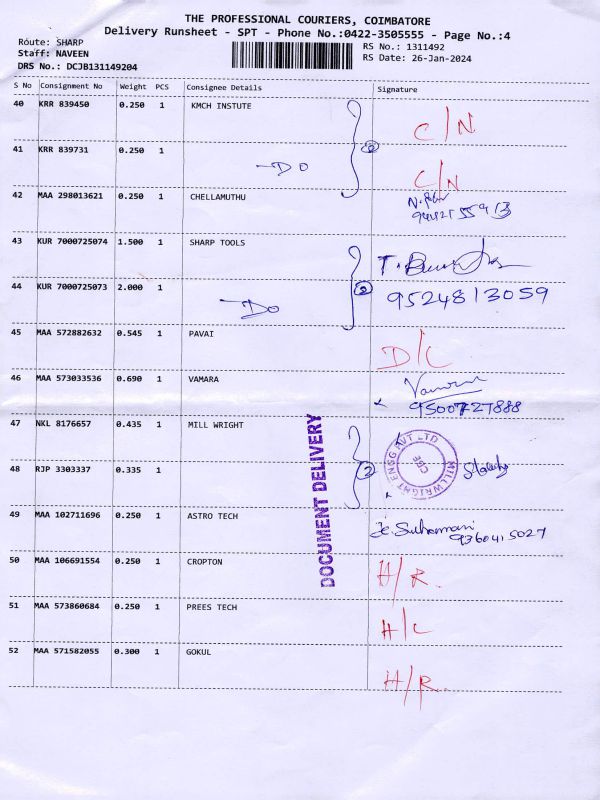 THE PROFESSIONAL COURIERS, COIMBATORE
Delivery Runsheet - SPT - Phone No.:0422-3505555 - Page No.:4
Route: SHARP
Staff: NAVEEN
DRS No.: DCJB131149204
RS No.: 1311492
RS Date: 26-Jan-2024
S No Consignment No Weight PCS Consignee Details Signature
40 KRR 839450 0.250 1 KMCH INSTUTE C/N
41 KRR 839731 0.250 1 Do 2 C/N
42 MAA 298013621 0.250 1 CHELLAMUTHU
43 KUR 7000725074 1.500 1 SHARP TOOLS
44 KUR 7000725073 2.000 1 Do 2 9524813059
45 MAA 572882632 0.545 1 PAVAI D/C
46 MAA 573033536 0.690 1 VAMARA
9500727888
47 NKL 8176657 0.435 1 MILL WRIGHT
48 RJP 3303337 0.335 1 2
MILL WRIGHT ENGG PVT LTD
CBE
DOCUMENT DELIVERY
49 MAA 102711696 0.250 1 ASTRO TECH
9360415027
50 MAA 106691554 0.250 1 CROPTON H/R.
51 MAA 573860684 0.250 1 PREES TECH H/C
52 MAA 571582055 0.300 1 GOKUL H/R.